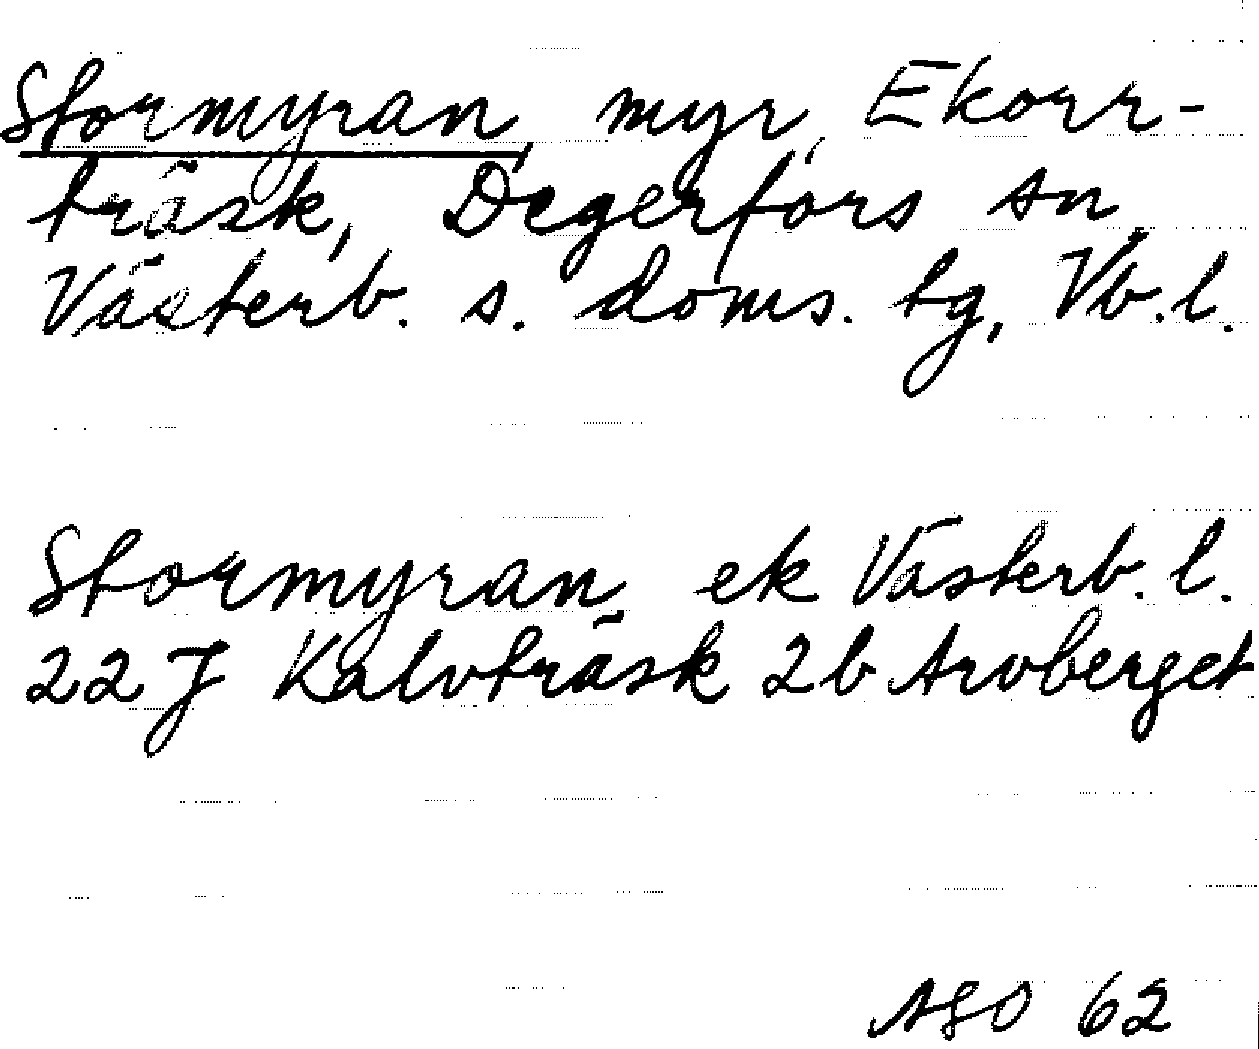 Stormyran, myr, Ekorr-
träsk, Degerfors sn,
Västerb. s. doms. tg, Vb.l.
Stormyran, ek Västerb. l.
22 J Kalvträsk 2b Arvberget
ASO 62